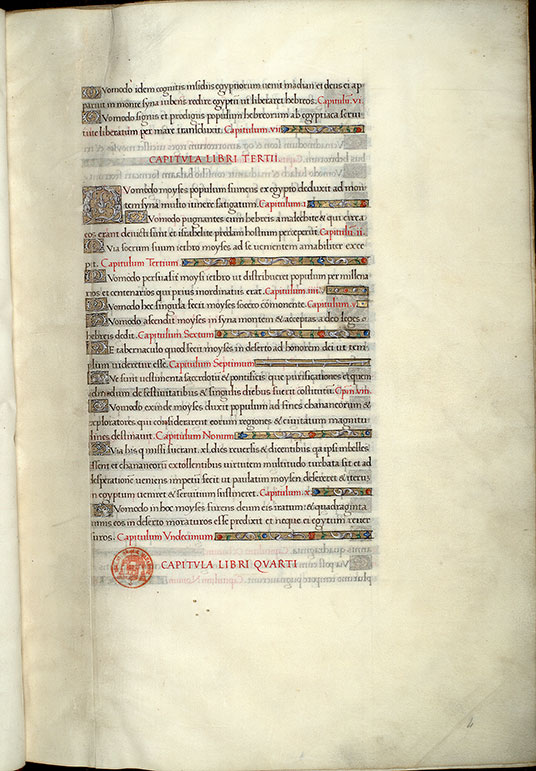 Quomodo idem cognitis insidiis egyptiorum uenit madian et deus ei ap
paruit in monte syna iubens redire egyptū ut liberaret hebreos. Capitulū. vi.
Quomodo signis et prodigiis populum hebreorum ab egyptiaca serui
tute liberatum per mare transduxit. Capitulum. vii
CAPITVLA LIBRI TERTII
Quomodo moyses populum sumens ex egypto deduxit ad mon
tem syna multo itinere fatigatum. Capitulum. i
Quomodo pugnantes cum hebreis amalechite & qui circa
eos erant deuicti sunt et israhelite predam hostium perceperūt. Capitulū. ii.
Quia socrum suum iethro moyses ad se uenientem amabiliter exce
pit. Capitulum Tertium.
Quomodo persuasit moysi iethro ut distribueret populum per millena
rios et centenarios qui prius inordinatus erat. Capitulum. iiii
Quomodo hec singula fecit moyses socero comonente. Capitulum. v.
Quomodo ascendit moyses in syna montem & acceptas a deo leges
hebreis dedit. Capitulum Sextum
De tabernaculo quod fecit moyses in deserto ad honorem dei ut tem
plum uideretur esse. Capitulum Septimum
Que sunt uestimenta sacerdotū & pontificis que purificationes et quem
admodum de festiuitatibus & singulis diebus fuerit cōstitutū. Cpm. viii.
Quomodo exinde moyses duxit populum ad fines chananeorum &
exploratores qui considerarent eorum regiones & ciuitatum magnitu
dines destinauit. Capitulum Nonum
Quia his qui missi fuerant .xl. dies reuersis & dicentibus quia ipsi imbelles
essent et chananeorū extollentibus uirtutem multitudo turbata sit et ad
desperatione ueniens impetū fecit ut paulatim moysen desereret & iterū
in egyptum ueniret & seruitium sustineret. Capitulum. x.
Quomodo in hoc moyses furens deum eis iratum & quadraginta
annis eos in deserto moraturos esse predixit et neque ei egyptum reuer
suros. Capitulum Vndecimum
CAPITVLA LIBRI QVARTI